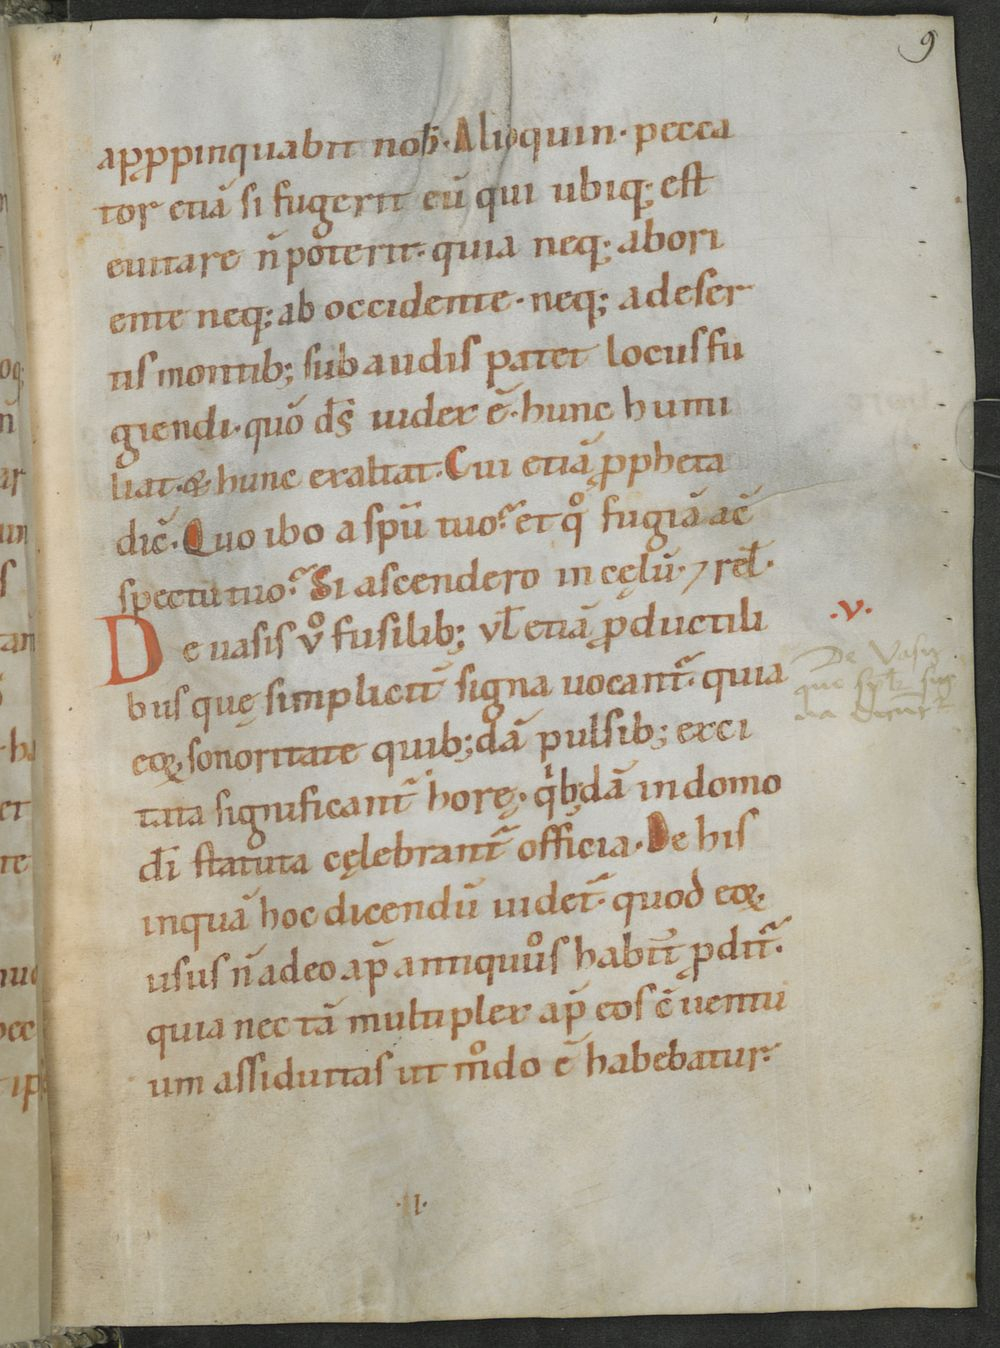 9
apppinquabit nob̄. Alioquin. pecca
tor etiā si fugerit eū qui ubiq; est
euitare n̄ poterit. quia neq; abori
ente neq; ab occidente. neq; adeser
tis montib; subaudis patet locus fu
giendi. quō ds̄ iudex ē. hunc humi
liat. & hunc exaltat. Cui etiā ꝓpheta
dic̄. Quo ibo a spū tuo. et qͦ fugiā ac̄
spectu tuo. Si ascendero in cęlū. ⁊ rel̄.
De uasis ůo fusilib; vl̄ etiā ꝓductili
.v.
bus quę simplicit̄ signa uocant᷑. quia
De Vasis
que sēpl᷑r sig
na dicūt᷑
eoꝝ sonoritate quib;dā pulsib; exci
tata significant᷑ horę. qͥb;dā in domo
dī statuta cęlebrant᷑ officia. De his
inquā hoc dicendū uidet᷑. quod eoꝝ
usus n̄ adeo ap̄ antiquůos habit᷑ ꝓdit᷑.
quia nec tā multiplex ap̄ eos c̄uentu
um assiduitas ut mͦdo ē habebatur.
.I.